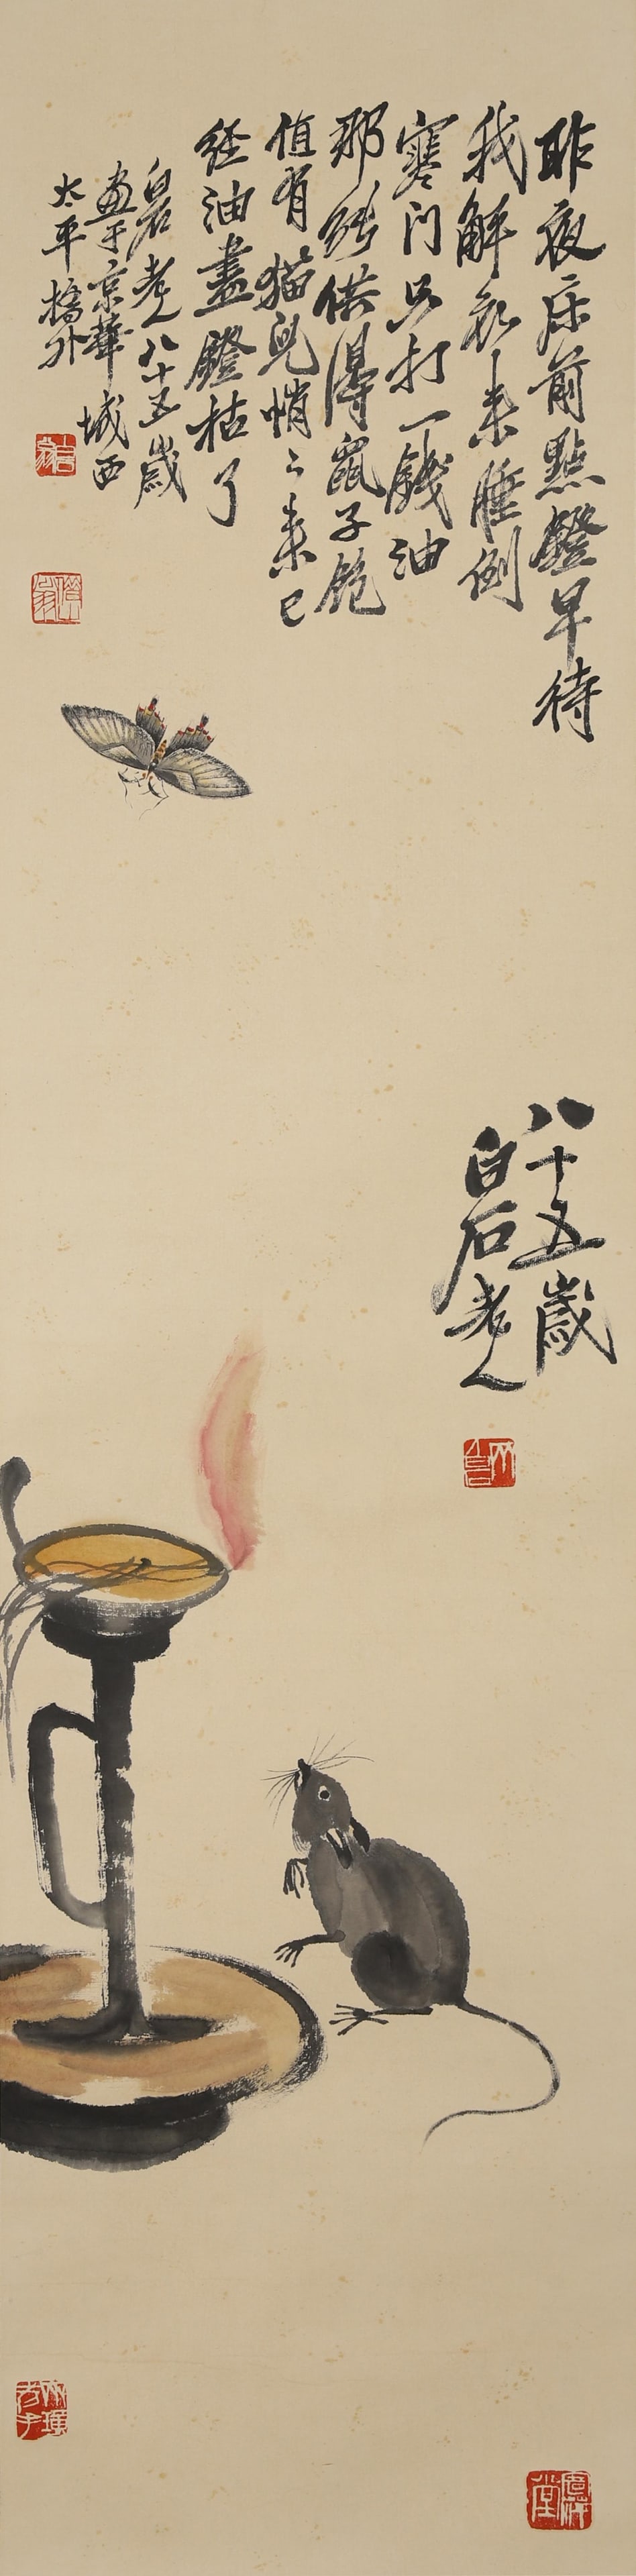 昨夜床前點鐙早待
我解衣来睡倒
寒门只打一錢油
那能供得鼠子飽
值有猫兒悄々来已
经油盡鐙枯了
白石老人八十五歲
畫于京華城西
太平橋外
八十五歲
白石老人